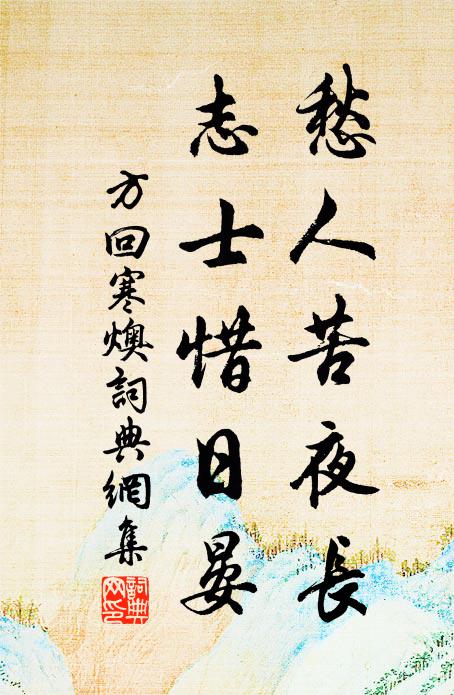 愁人苦夜長
志士惜日晏
方回寒燠詞典網集
詞典网印